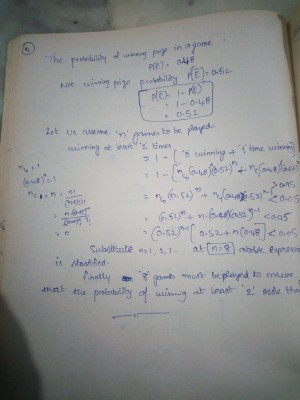 4
The probability of winning prize in a game
P(E) = 0.48
Not winning prize probability P(E̅) = 0.52
P(E̅) = 1 - P(E)
= 1 - 0.48
= 0.52
Let us assume 'n' games to be played
winning at least '2' times
= 1 - [ '0' winning + '1' time winning
n_{c_0} = 1
(0.48)^0 = 1
= 1 - [n_{c_0}(0.48)^0(0.52)^n + n_{c_1}(0.48)(0.52)
> 0.95
= n_{c_0}(0.52)^n + n_{c_1}(0.48)(0.52)^{n-1} < 0.05
= (0.52)^n + n·(0.48)(0.52)^{n-1} < 0.05
= n
= (0.52)^{n-1} [0.52 + n(0.48)] < 0.05
Substitute n=1, 2, at n=8 above expression
is satisfied.
Finally '8' games must be played to ensure
that the probability of winning at least '2'